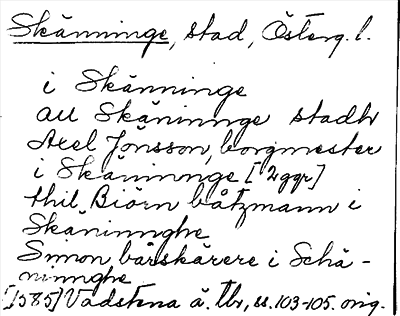 Skänninge, stad, Österg. l.
i Skänninge
au Skäninnge stadh
Axel Jönsson, borgmester
i Skäninnge [2ggr]
thil Biörn båtzmann i
Skäninnghe
Simon bårskärere i Schä-
ninnghe
[1585] Vadstena ä. tbr, ss. 103-105. orig.